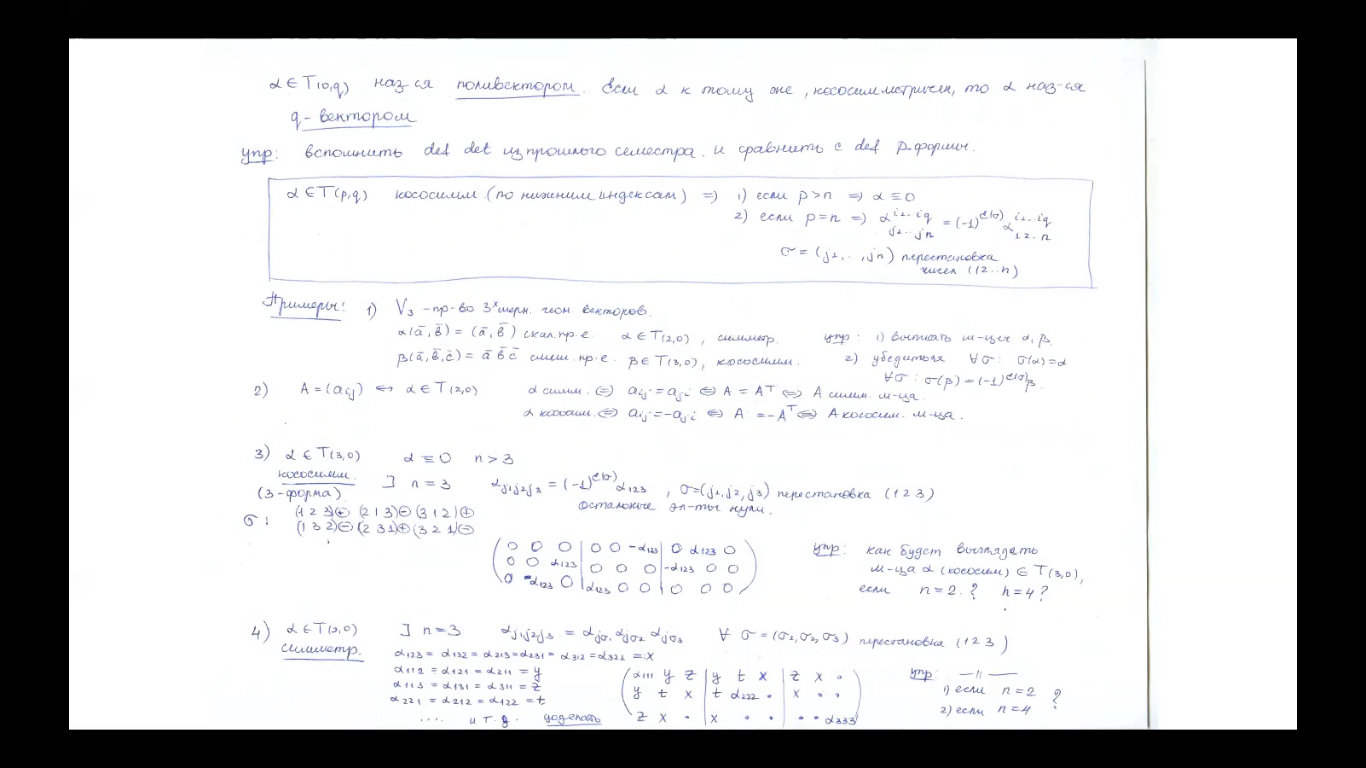 α ∈ T(0,q) наз-ся поливектором. Если α к тому же, кососимметричен, то α наз-ся
q-вектором
упр: вспомнить def det из прошлого семестра. и сравнить с def p-формы.
α ∈ T(p,q) кососимм. (по нижним индексам) ⇒ 1) если p>n ⇒ α ≡ 0
2) если p=n ⇒ α^{i₁...iq}_{j₁...jn} = (-1)^{ε(σ)} α^{i₁...iq}_{12...n}
σ = (j₁,..,jn) перестановка
чисел (12...n)
Примеры: 1) V₃ - пр-во 3ˣ мерн. геом векторов.
α(ā,b̄) = (ā,b̄) скал.пр-е. α ∈ T(2,0), симметр. упр: 1) выписать м-цы α, β.
β(ā,b̄,c̄) = ā b̄ c̄ смеш. пр-е. β ∈ T(3,0), кососимм. 2) убедиться ∀σ: σ(α)=α
∀σ: σ(β) = (-1)^{ε(σ)}β.
2) A = (aij) ↔ α ∈ T(2,0) α симм. ⇔ aij = aji ⇔ A = Aᵀ ⇔ A симм. м-ца.
α кососим. ⇔ aij = -aji ⇔ A = -Aᵀ ⇔ A кососим. м-ца.
3) α ∈ T(3,0) α ≡ 0 n > 3
кососимм. ∃ n = 3 α_{j₁j₂j₃} = (-1)^{ε(σ)} α₁₂₃, σ=(j₁,j₂,j₃) перестановка (1 2 3)
(3-форма) остальные эл-ты нули.
σ: (1 2 3)⊕ (2 1 3)⊖ (3 1 2)⊕
(1 3 2)⊖ (2 3 1)⊕ (3 2 1)⊖
0 0 0 | 0 0 -α₁₂₃ | 0 α₁₂₃ 0
0 0 α₁₂₃ | 0 0 0 | -α₁₂₃ 0 0
0 -α₁₂₃ 0 | α₁₂₃ 0 0 | 0 0 0
упр: как будет выглядеть
м-ца α (кососим) ∈ T(3,0),
если n = 2. ? n = 4?
4) α ∈ T(2,0) ∃ n = 3 α_{j₁j₂j₃} = α_{jσ₁ jσ₂ jσ₃} ∀ σ = (σ₁,σ₂,σ₃) перестановка (1 2 3)
симметр. α₁₂₃ = α₁₃₂ = α₂₁₃ = α₂₃₁ = α₃₁₂ = α₃₂₁ =: x
α₁₁₂ = α₁₂₁ = α₂₁₁ = y
α₁₁₃ = α₁₃₁ = α₃₁₁ = z
α₂₂₁ = α₂₁₂ = α₁₂₂ = t
.... и т.д. доделать
α₁₁₁ y z | y t x | z x •
y t x | t α₂₂₂ • | x • •
z x • | x • • | • • α₃₃₃
упр: —〃—
1) если n = 2 ?
2) если n = 4